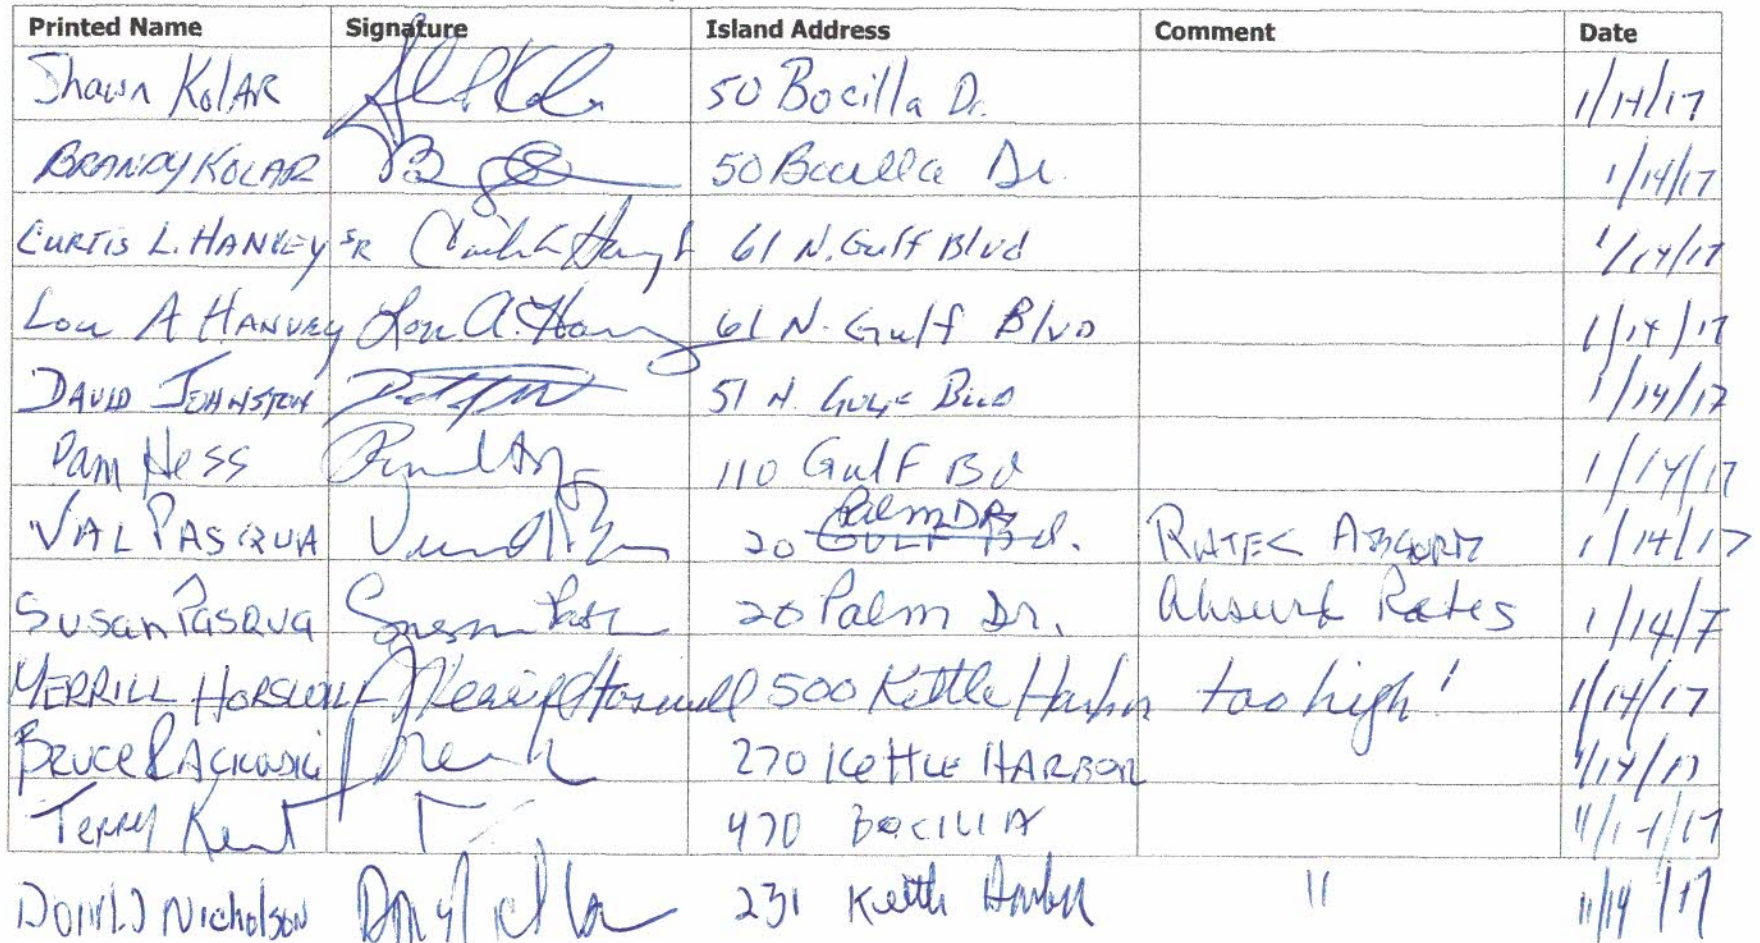 Printed Name Signature Island Address Comment Date
Shawn KolAR 50 Bocilla Dr. 1/14/17
BRANDY KOLAR 50 Bocilla Dr. 1/14/17
CURTIS L. HANVEY SR 61 N. Gulf Blvd 1/14/17
Lou A HANVEY Lou A. 61 N. Gulf Blvd 1/14/17
DAVID JOHNSTON 51 N. Blvd 1/14/17
Pam Hess 110 Gulf Bd 1/14/17
Palm DR
VAL PASQUA 20 Gulf Bd. RATES 1/14/17
Susan Pasqua Susan 20 Palm Dr. Absurd Rates 1/14/7
MERRILL Merrill 500 Kettle Harbor too high! 1/14/17
BRUCE 270 KETTLE HARBOR 1/14/17
Terry Kent 470 BOCILLA 1/14/17
Nicholson 231 Kettle Harbor " 1/14/17